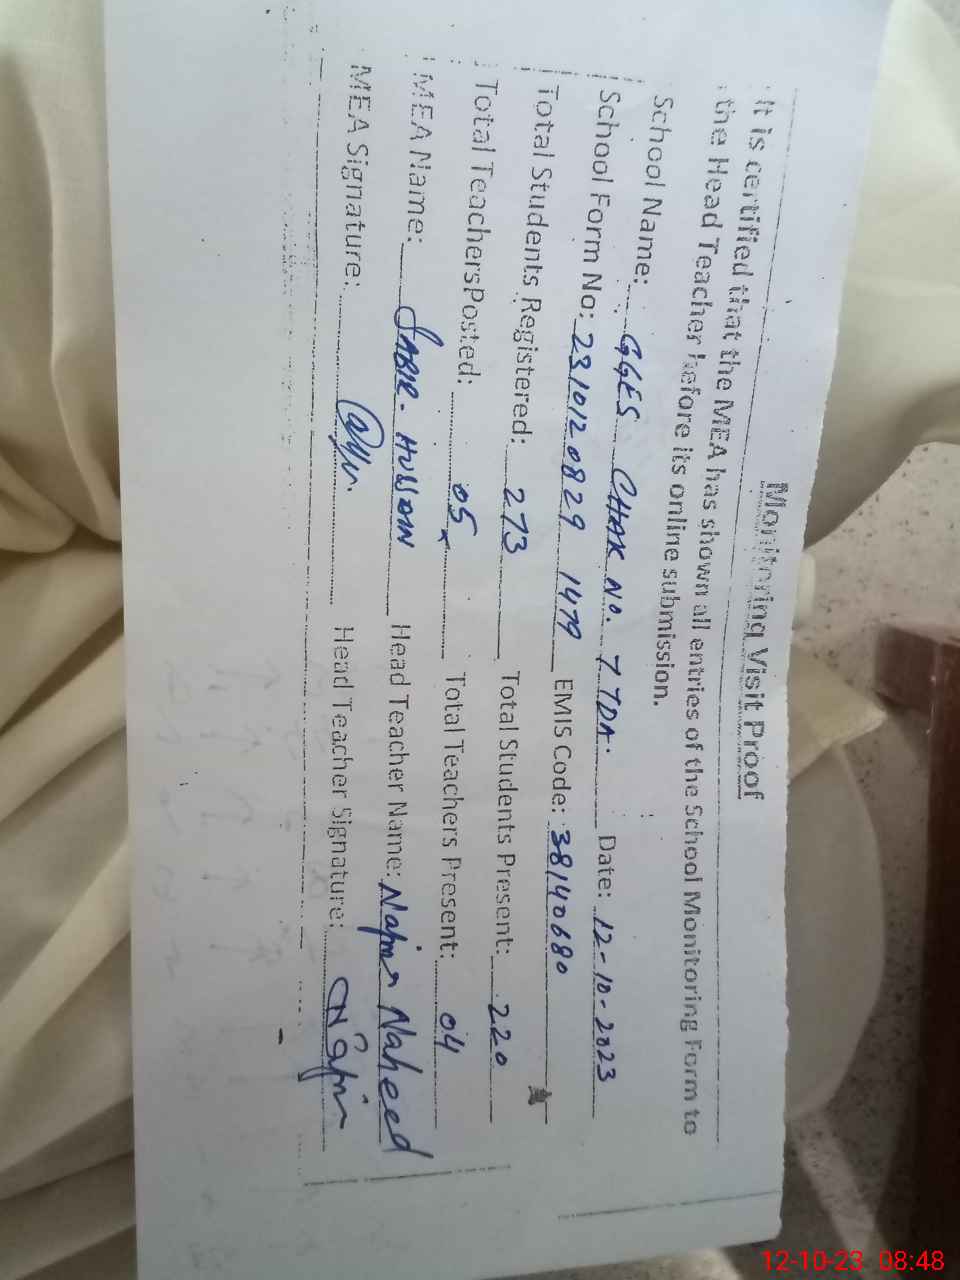 Monitoring Visit Proof
It is certified that the MEA has shown all entries of the School Monitoring Form to
the Head Teacher before its online submission.
School Name: GGES CHAK NO. 7 TDA Date: 12-10-2023
School Form No: 2310120829 1479 EMIS Code: 38140680
Total Students Registered: 273 Total Students Present: 220
Total TeachersPosted: 05 Total Teachers Present: 04
MEA Name: SABIR. HUSSAIN Head Teacher Name: Najma Naheed
MEA Signature: Head Teacher Signature: Najm
12-10-23 08:48